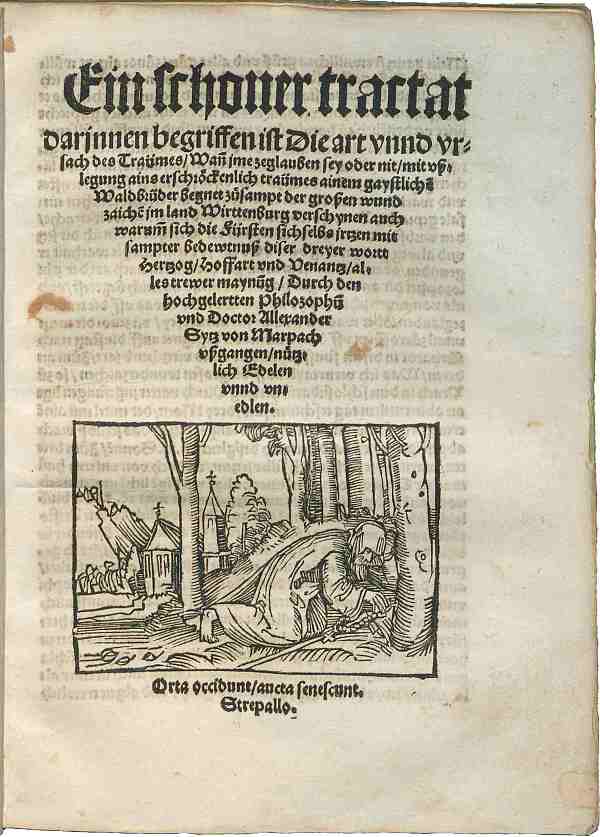 Ein schoner tractat
darjnnen begriffen ist Die art vnnd vr⸗
sach des Traümes/ Wañ jme zeglauben sey oder nit/ mit vß⸗
legung ains erschröckenlich traümes ainem gaystlichē
Waldbrüder begnet zůsampt der großen wund
zaichē jm land Wirttenburg verschynen auch
warum̄ sich die Fürsten sichselbs jrtzen mit
sampter bedewtnuß diser dreyer wortt
Hertzog/ Hoffart vnd Venantz/ al⸗
les trewer maynũg/ Durch den
hochgelertten Philozophũ
vnd Doctor Allexander
Sytz von Marpach
vßgangen/ nütz⸗
lich Edelen
vnnd vn⸗
edlen.
Orta occidunt/ aucta senescunt.
Strepallo.